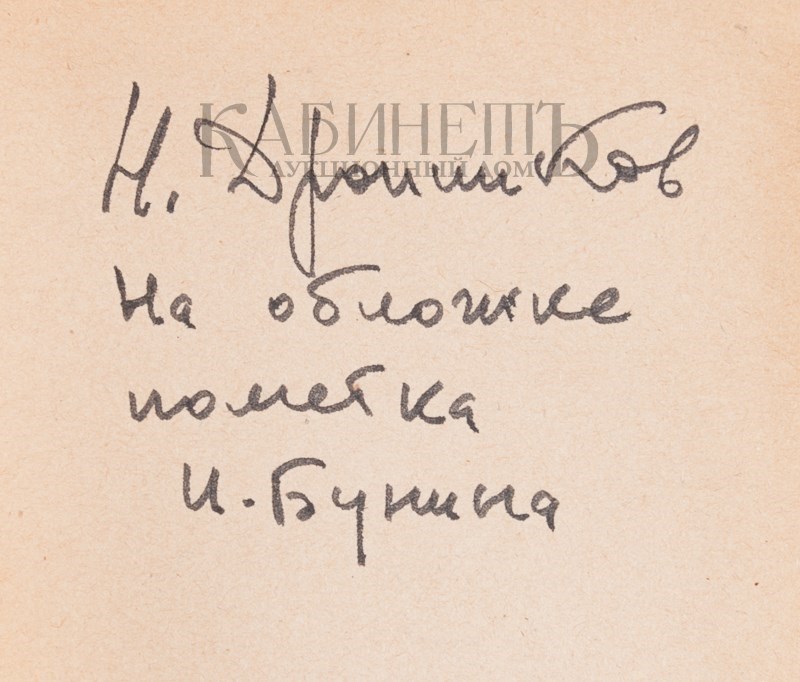 КАБИНЕТЪ
АУКЦИОННЫЙ ДОМ
Н. Дронников
На обложке
пометка
И. Бунина